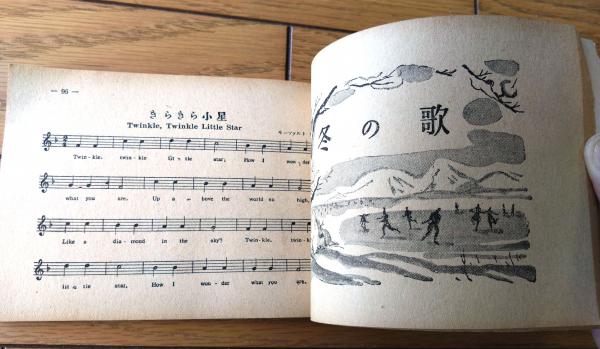 — 96 —
きらきら小星
Twinkle, Twinkle Little Star
モーツァルト
Twin - kle, twin - kle lit - tle star, How I won - der
what you are, Up a - bove the world so high,
Like a dia - mond in the sky! Twin - kle, twin - k
lit - tle star, How I won - der what you are.
冬の歌